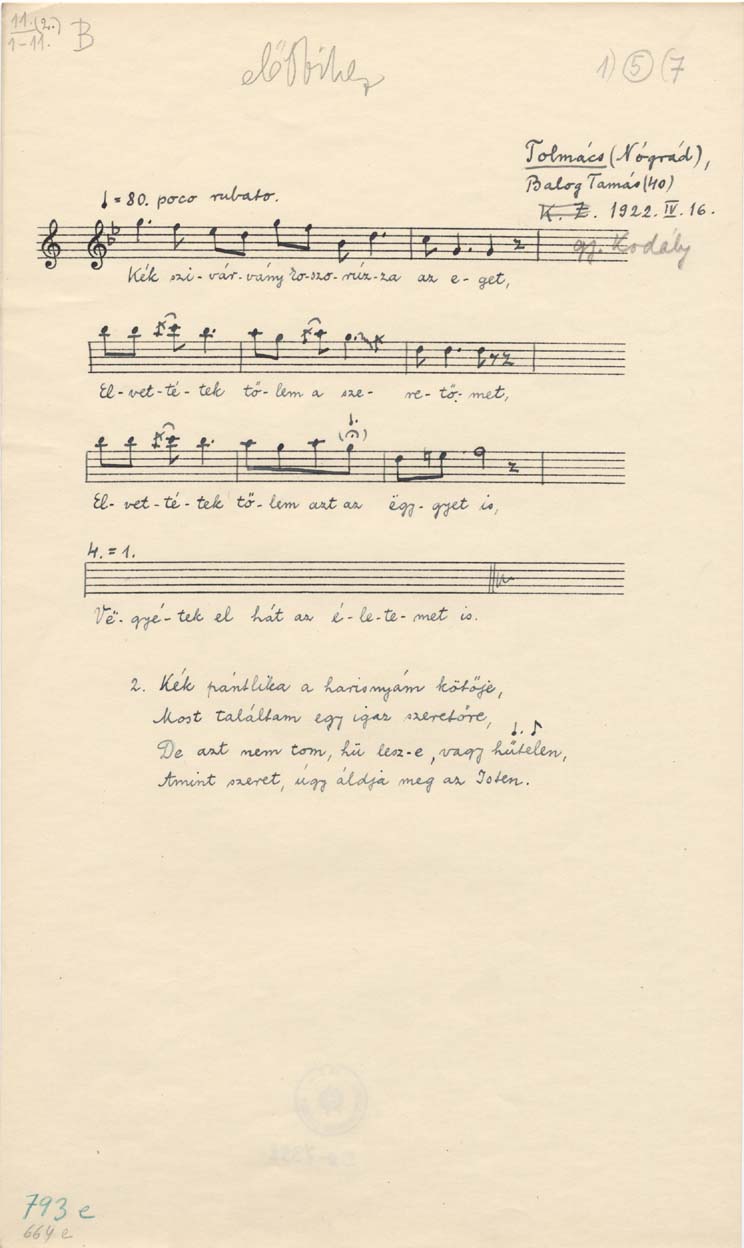 11.(2.)
1-11. B
1) 5 (7
Tolmács (Nógrád),
Balog Tamás (40)
K. Z. 1922. IV. 16.
gy. Kodály
♩ = 80. poco rubato.
Kék szi-vár-vány ko-szo-rúz-za az e-get,
El-vet-té-tek tő-lem a sze- re-tő-met,
El-vet-té-tek tő-lem azt az ëgy-gyet is,
4. = 1.
Vë-gyé-tek el hát az é-le-te-met is.
2. Kék pántlika a harisnyám kötője,
Most találtam egy igaz szeretőre,
De azt nem tom, hű lesz-e, vagy hűtelen,
Amint szeret, úgy áldja meg az Isten.
793 e
664 e